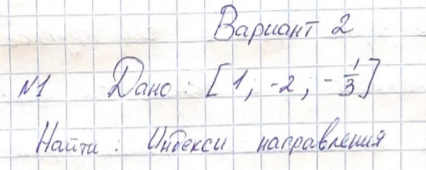 Вариант 2
№1 Дано: [1, -2, -1/3]
Найти: Индекси направления